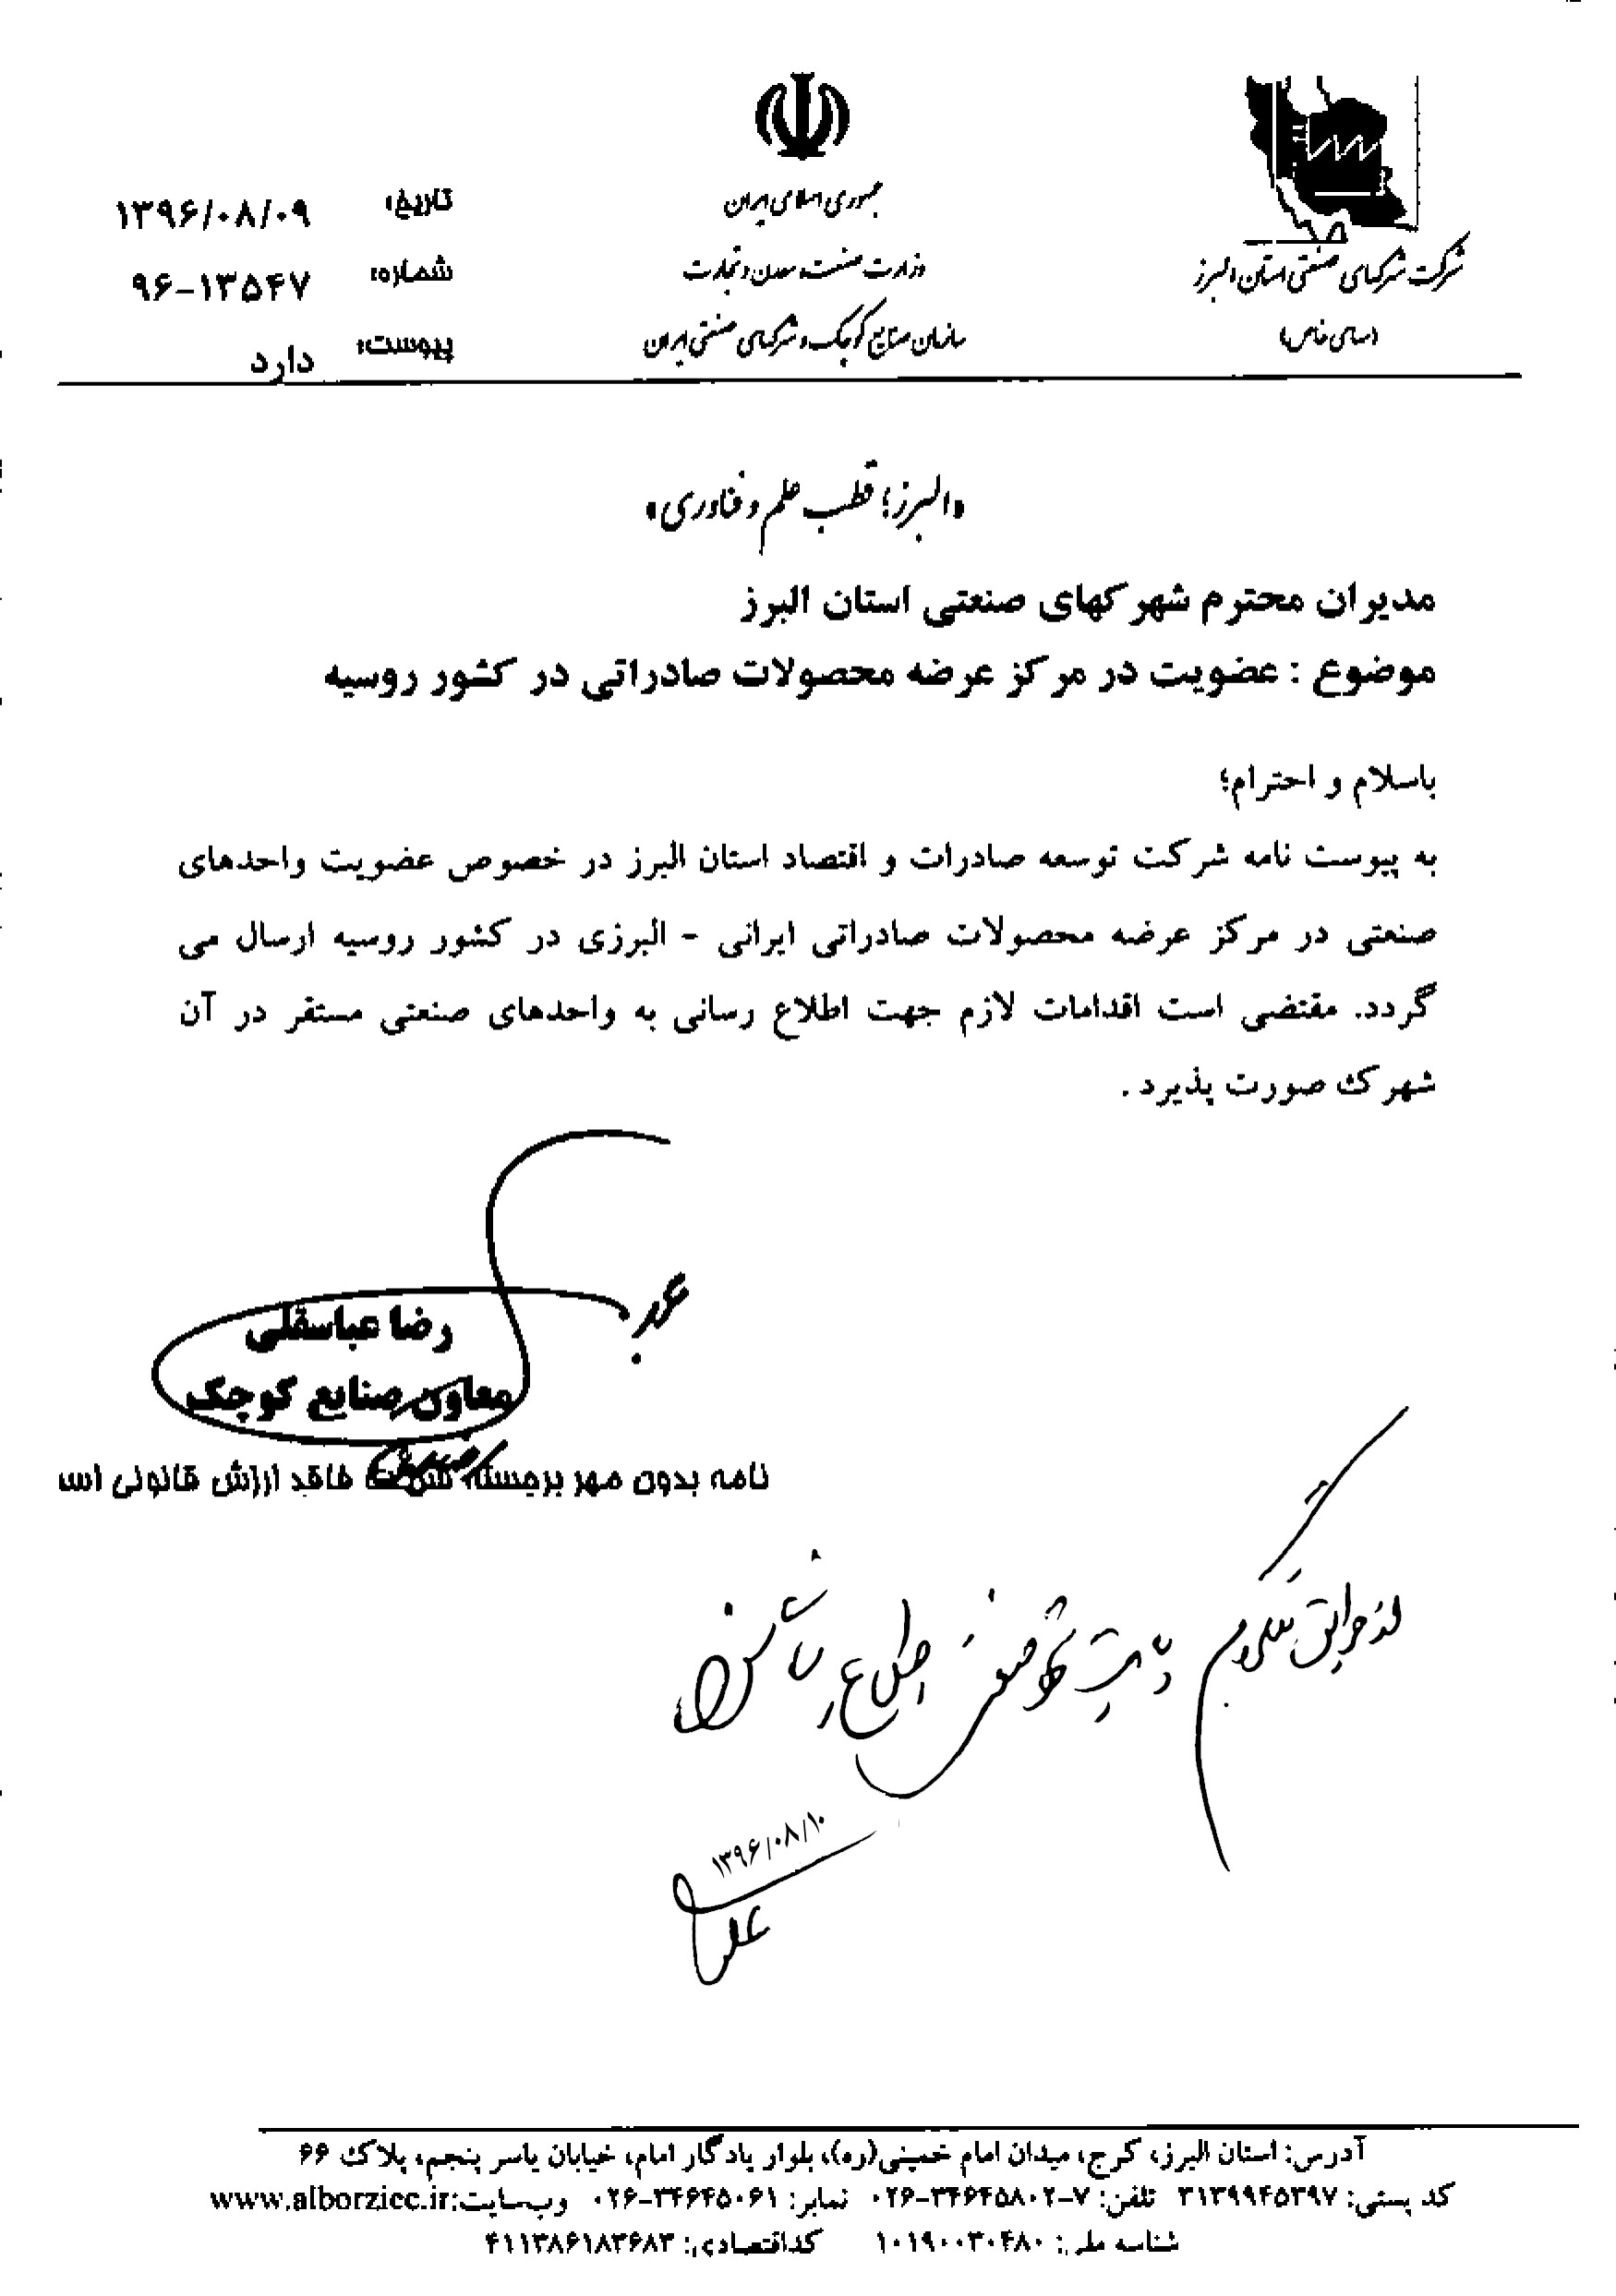 جمهوری اسلامی ایران
وزارت صنعت، معدن و تجارت
سازمان صنایع کوچک و شهرکهای صنعتی ایران
شرکت شهرکهای صنعتی استان البرز
(سهامی خاص)
تاریخ: ۱۳۹۶/۰۸/۰۹
شماره: ۹۶-۱۳۵۴۷
پیوست: دارد
«البرز؛ قطب علم و فناوری»
مدیران محترم شهرکهای صنعتی استان البرز
موضوع : عضویت در مرکز عرضه محصولات صادراتی در کشور روسیه
باسلام و احترام؛
به پیوست نامه شرکت توسعه صادرات و اقتصاد استان البرز در خصوص عضویت واحدهای
صنعتی در مرکز عرضه محصولات صادراتی ایرانی - البرزی در کشور روسیه ارسال می
گردد. مقتضی است اقدامات لازم جهت اطلاع رسانی به واحدهای صنعتی مستقر در آن
شهرک صورت پذیرد .
رضا عباسقلی
معاون صنایع کوچک
نامه بدون مهر برجسته شرکت فاقد ارزش قانونی اس
اطلاع
۱۳۹۶/۰۸/۱۰
آدرس: استان البرز، کرج، میدان امام خمینی(ره)، بلوار یادگار امام، خیابان یاسر پنجم، پلاک ۶۶
کد پستی: ۳۱۳۹۹۴۵۳۹۷ تلفن: ۷-۰۲۶-۳۴۶۴۵۸۰۲ نمابر: ۰۲۶-۳۴۶۴۵۰۶۱ وب‌سایت:www.alborziec.ir
شناسه ملی: ۱۰۱۹۰۰۳۰۴۸۰ کداقتصادی: ۴۱۱۳۸۶۱۸۳۶۸۳